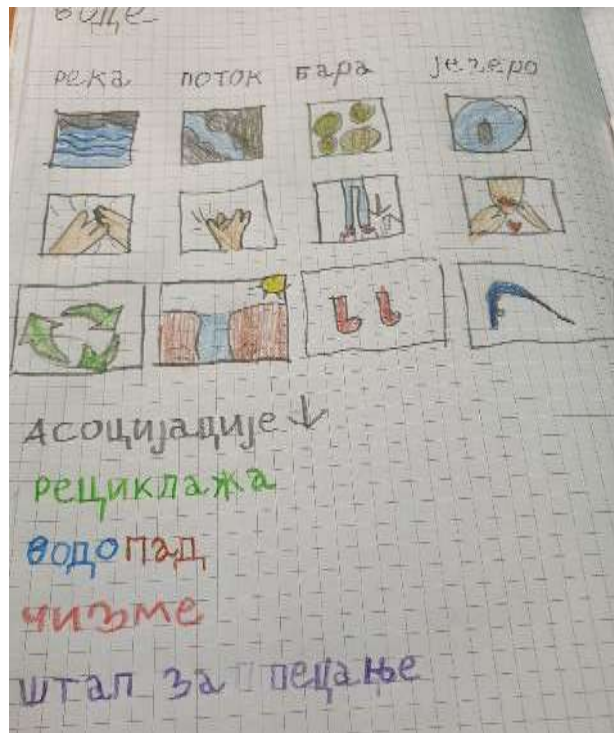 воде
река поток бара језеро
Асоцијације
рециклажа
водопад
чизме
штап за пецање